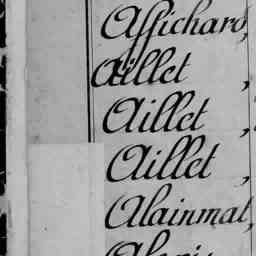 Affichard,
Aillet,
Aillet,
Aillet,
Alainmat,